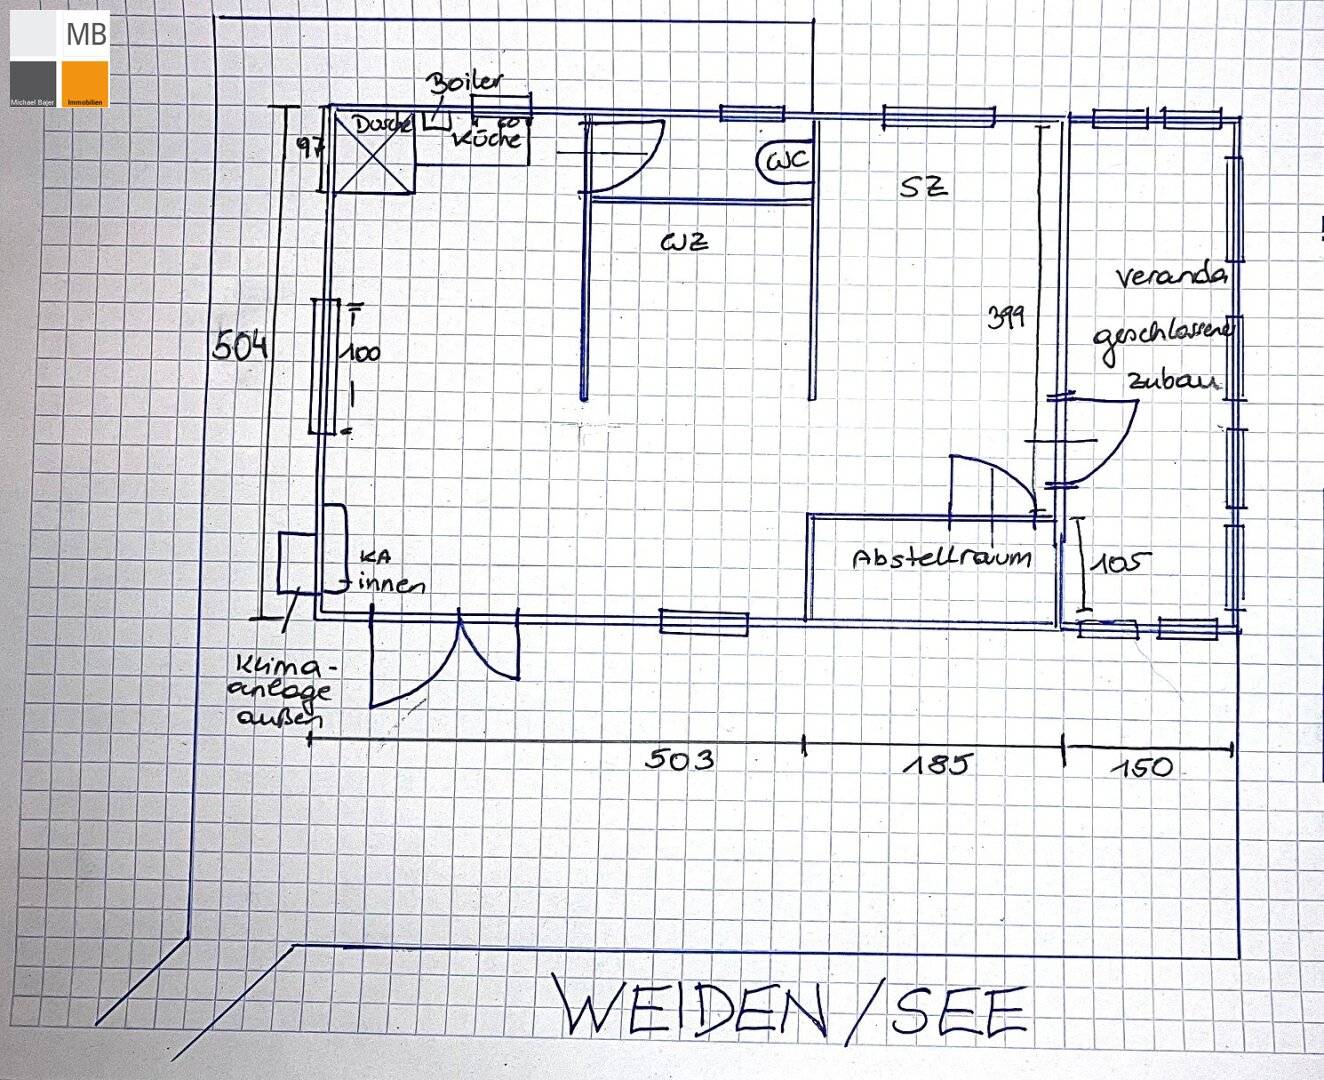 MB
Michael Bajer
Immobilien
Boiler
Dusche
Küche
97
WC
SZ
WZ
Veranda
geschlossener
zubau
399
504
100
KA
innen
Abstellraum
105
Klima-
anlage
außen
503
185
150
WEIDEN/SEE